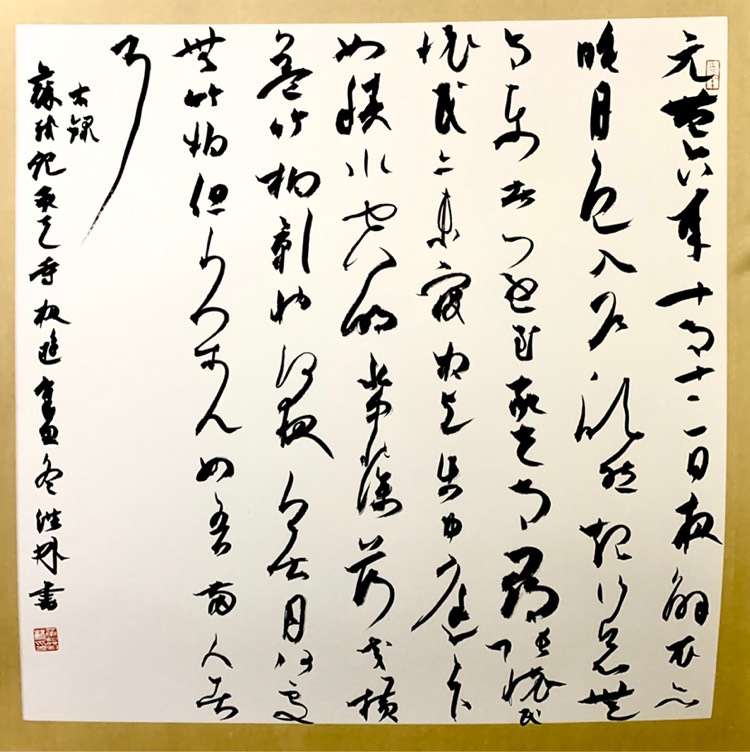 元豐六年十月十二日夜解衣欲
睡月色入户欣然起行念無
与樂者遂至承天寺尋張懷民
懷民亦未寢相与步中庭下
如積水空明水中藻荇交横
蓋竹柏影也何夜無月何處
無竹柏但少閑人如吾兩人者
耳
右錄
蘇軾記承天寺夜遊冬書